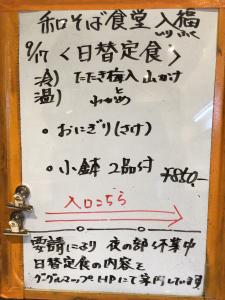 和そば食堂 入福
いり ふく
9/17 〈日替定食〉
冷) たたき梅入 山かけ
温) わかめと
• おにぎり(さけ)
• 小鉢 2品付 ¥850.-
入口こちら
要請により 夜の部 休業中
日替定食の内容を
グーグルマップHPにて案内しています